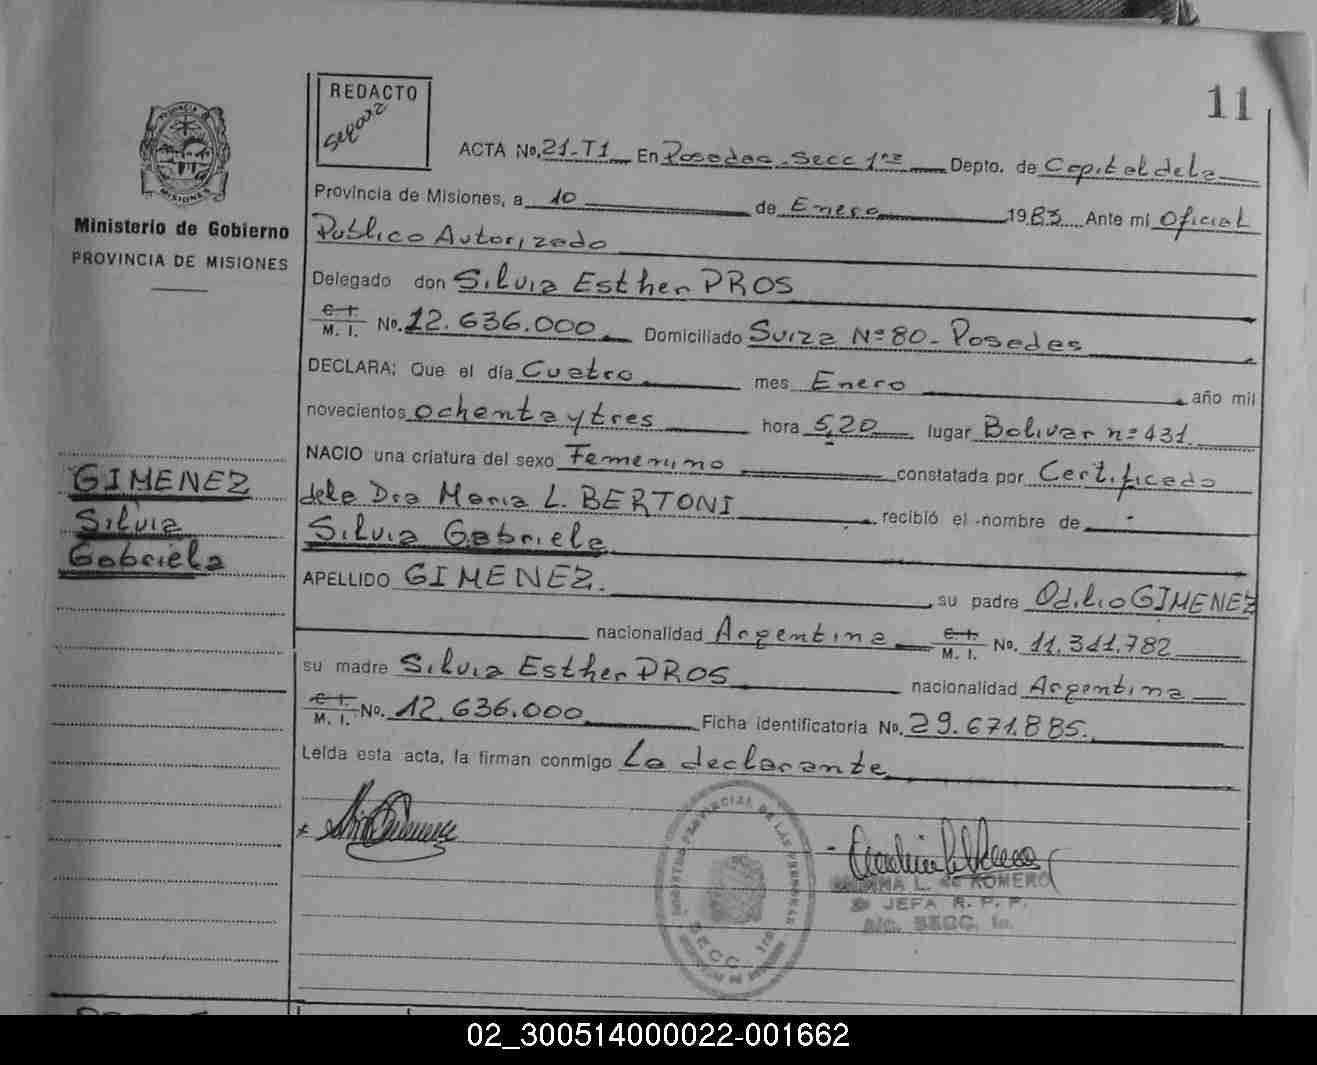 11
REDACTO
Separz
PROVINCIA DE
MISIONES
Ministerio de Gobierno
PROVINCIA DE MISIONES
ACTA No. 21-T1 En Posadas - Secc 1ra Depto. de Capital de la
Provincia de Misiones, a 10 de Enero 1983 Ante mi Oficial
Publico Autorizado
Delegado don Silvia Esther PROS
C. I.
M. I. No. 12.636.000 Domiciliado Suiza Nº 80 - Posadas
DECLARA: Que el día Cuatro mes Enero año mil
novecientos ochenta y tres hora 5,20 lugar Bolivar nº 431
NACIO una criatura del sexo Femenino constatada por Certificado
de la Dra Maria L. BERTONI recibió el nombre de
Silvia Gabriela
APELLIDO GIMENEZ. su padre Odilio GIMENEZ
nacionalidad Argentina C. I. M. I. No. 11.311.782
su madre Silvia Esther PROS nacionalidad Argentina
C. I.
M. I. No. 12.636.000 Ficha identificatoria No. 29.671.885.
Leída esta acta, la firman conmigo La declarante
GIMENEZ
Silvia
Gabriela
REGISTRO PROVINCIAL DE LAS PERSONAS
SECC. 1ra
L. de ROMERO
JEFA R. P. P.
a/c. SECC. 1a.
02_300514000022-001662